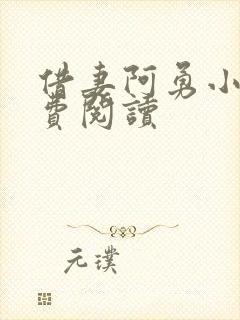 借妻阿勇小
費閱讀
元璞